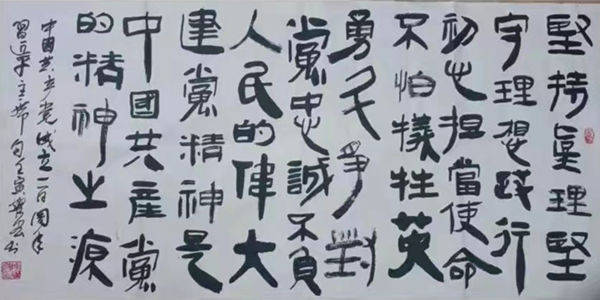 堅持真理堅
守理想践行
初心担當使命
不怕犧牲英
勇斗爭對
黨忠誠不負
人民的偉大
建黨精神是
中國共産黨
的精神之源
中國共产党成立一百周年
習近平主席句壬寅